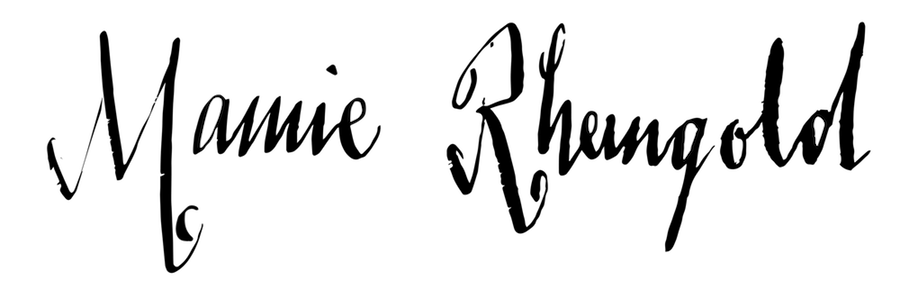 Mamie Rheingold